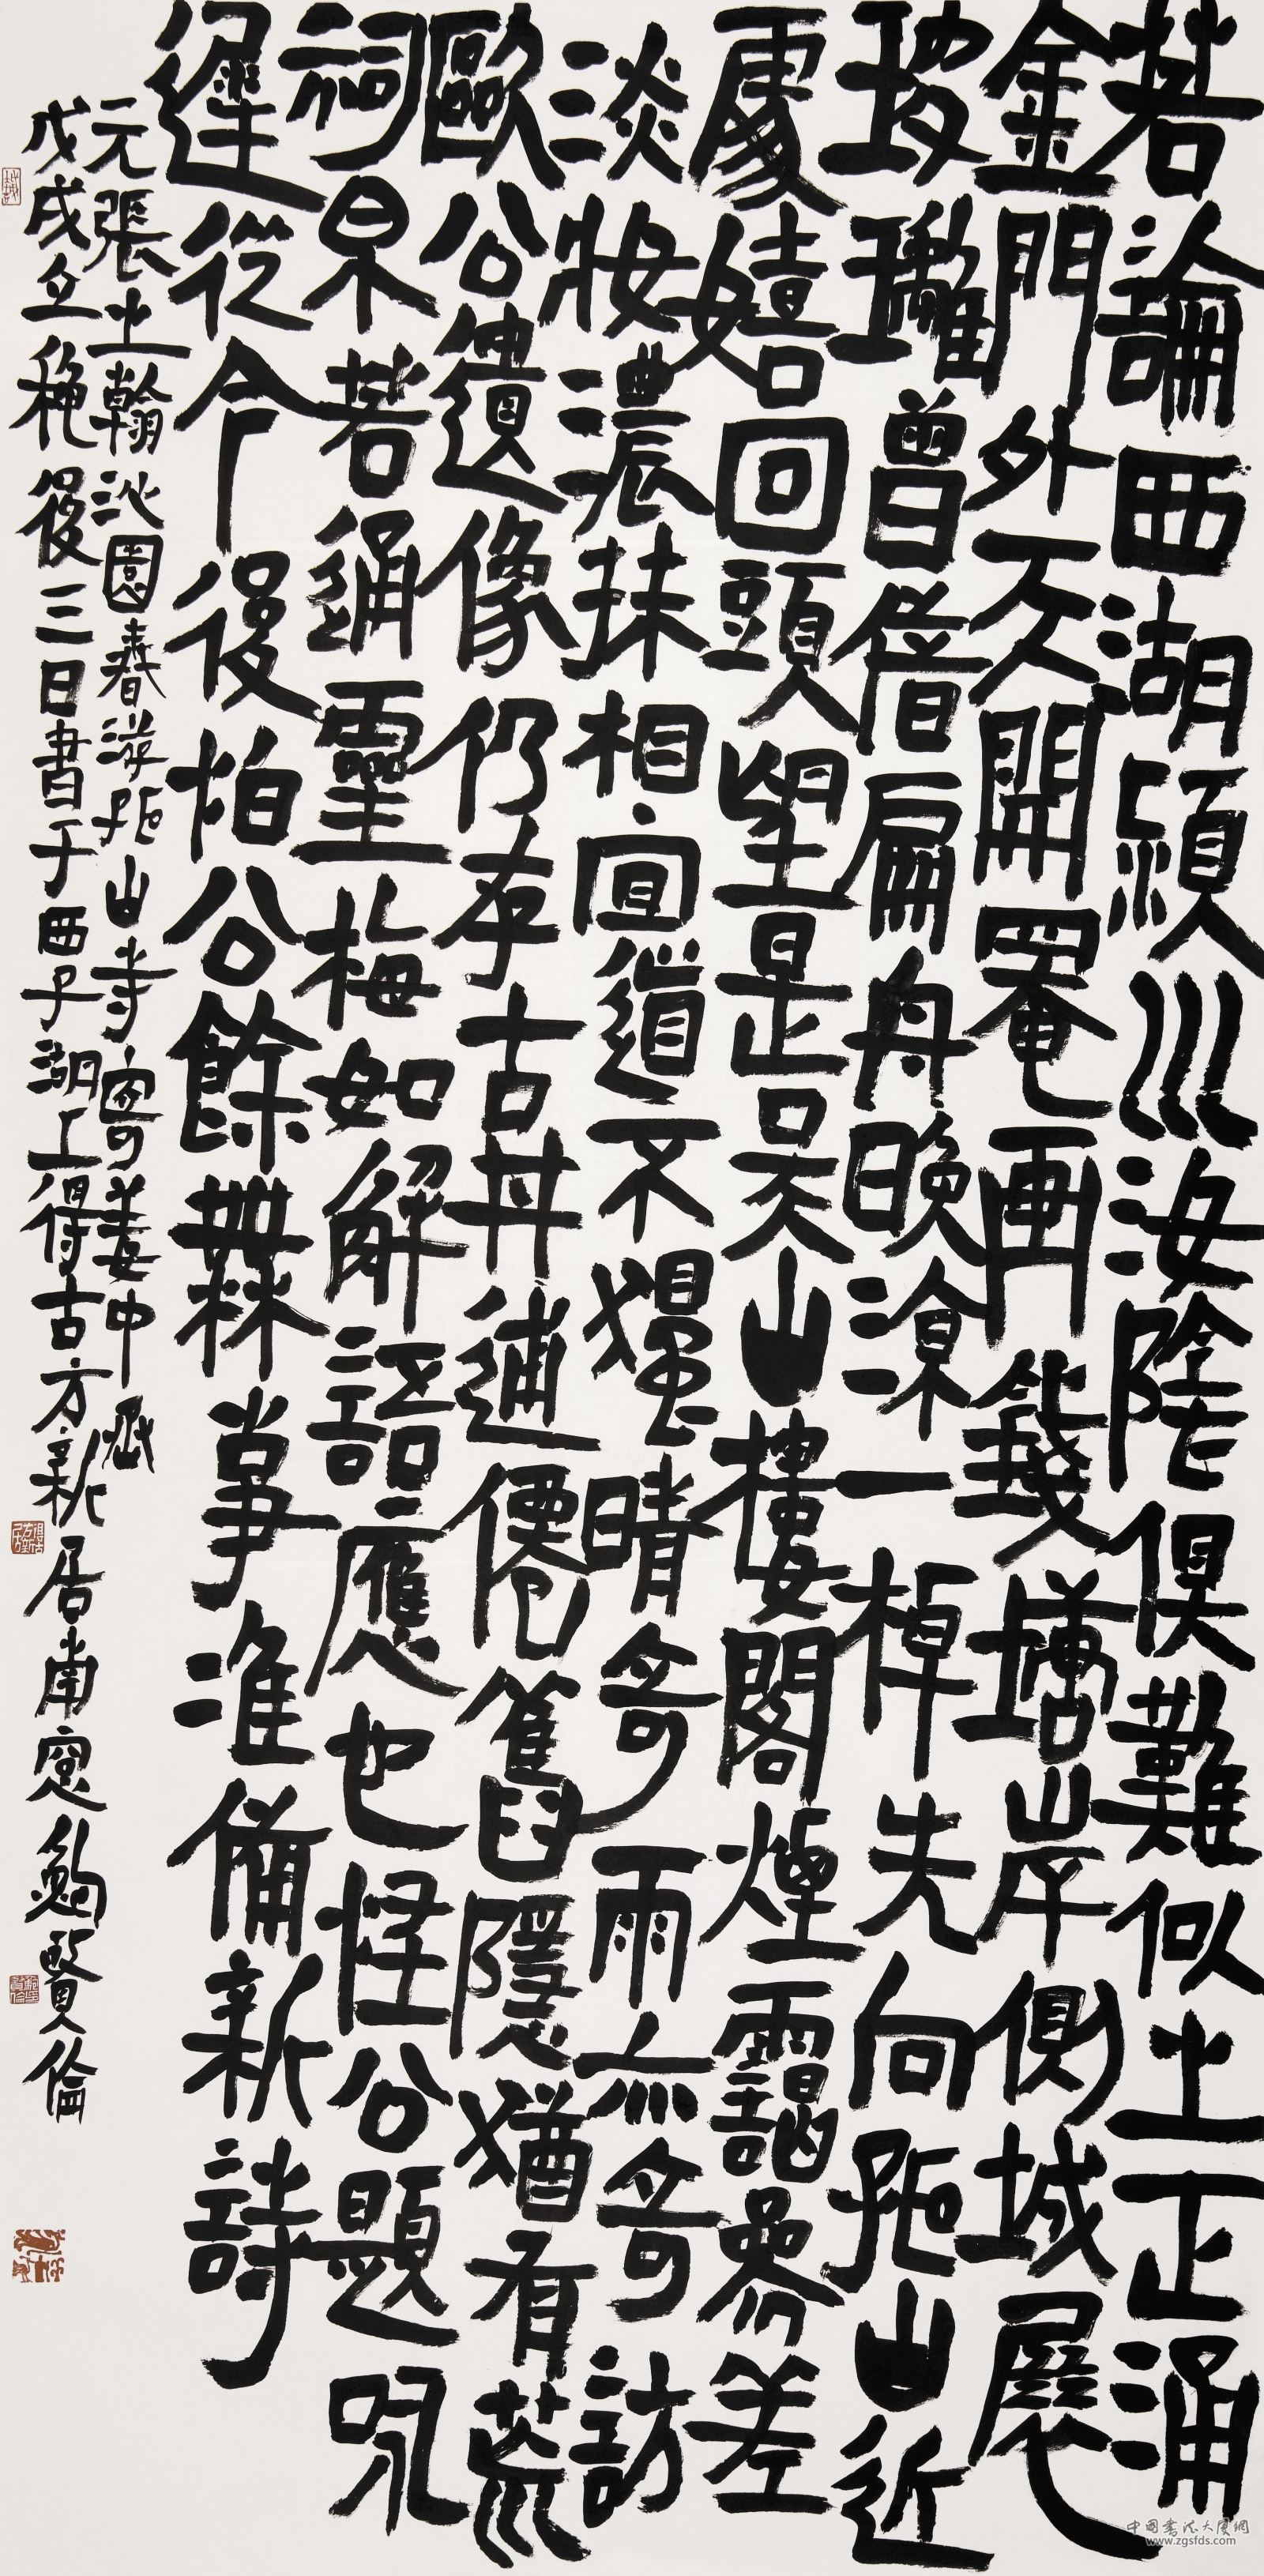 若論西湖潁川汝陰俱難似之正涌
金門外天開罨畫錢塘岸側城展
玻瓈曾借扁舟晚涼一棹先向孤山近
處嬉回頭望是吴山樓閣煙靄參差
淡妝濃抹相宜道不獨晴奇雨亦奇訪
歐公遺像仍存古井逋僊舊隱猶有荒
祠泉若通靈梅如解語應也怪公題
遲從今後怕公餘無事准備新詩
元張之翰沁園春游孤山寺寄姜中丞
戊戌立秋後三日書于西子湖上得古方新居南窗鮑賢倫
中国書法大厦網
www.zgsfds.com